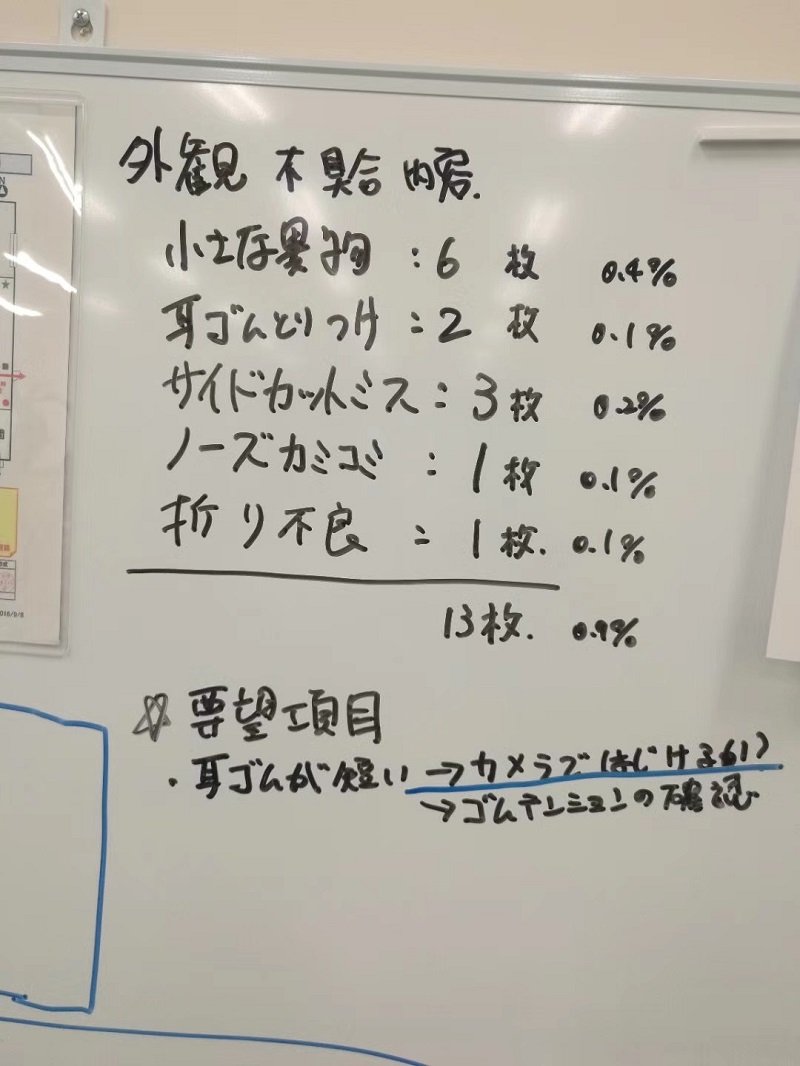 外観 不具合 内容.
異物 : 6 枚 0.4%
耳ゴムとりつけ : 2 枚 0.1%
サイドカットミス : 3枚 0.2%
ノーズカミコミ : 1枚 0.1%
折り不良 : 1枚. 0.1%
13枚. 0.9%
☆ 要望項目
・耳ゴムが短い → カメラで はじける
→ ゴムテンションの確認
2016/8/8